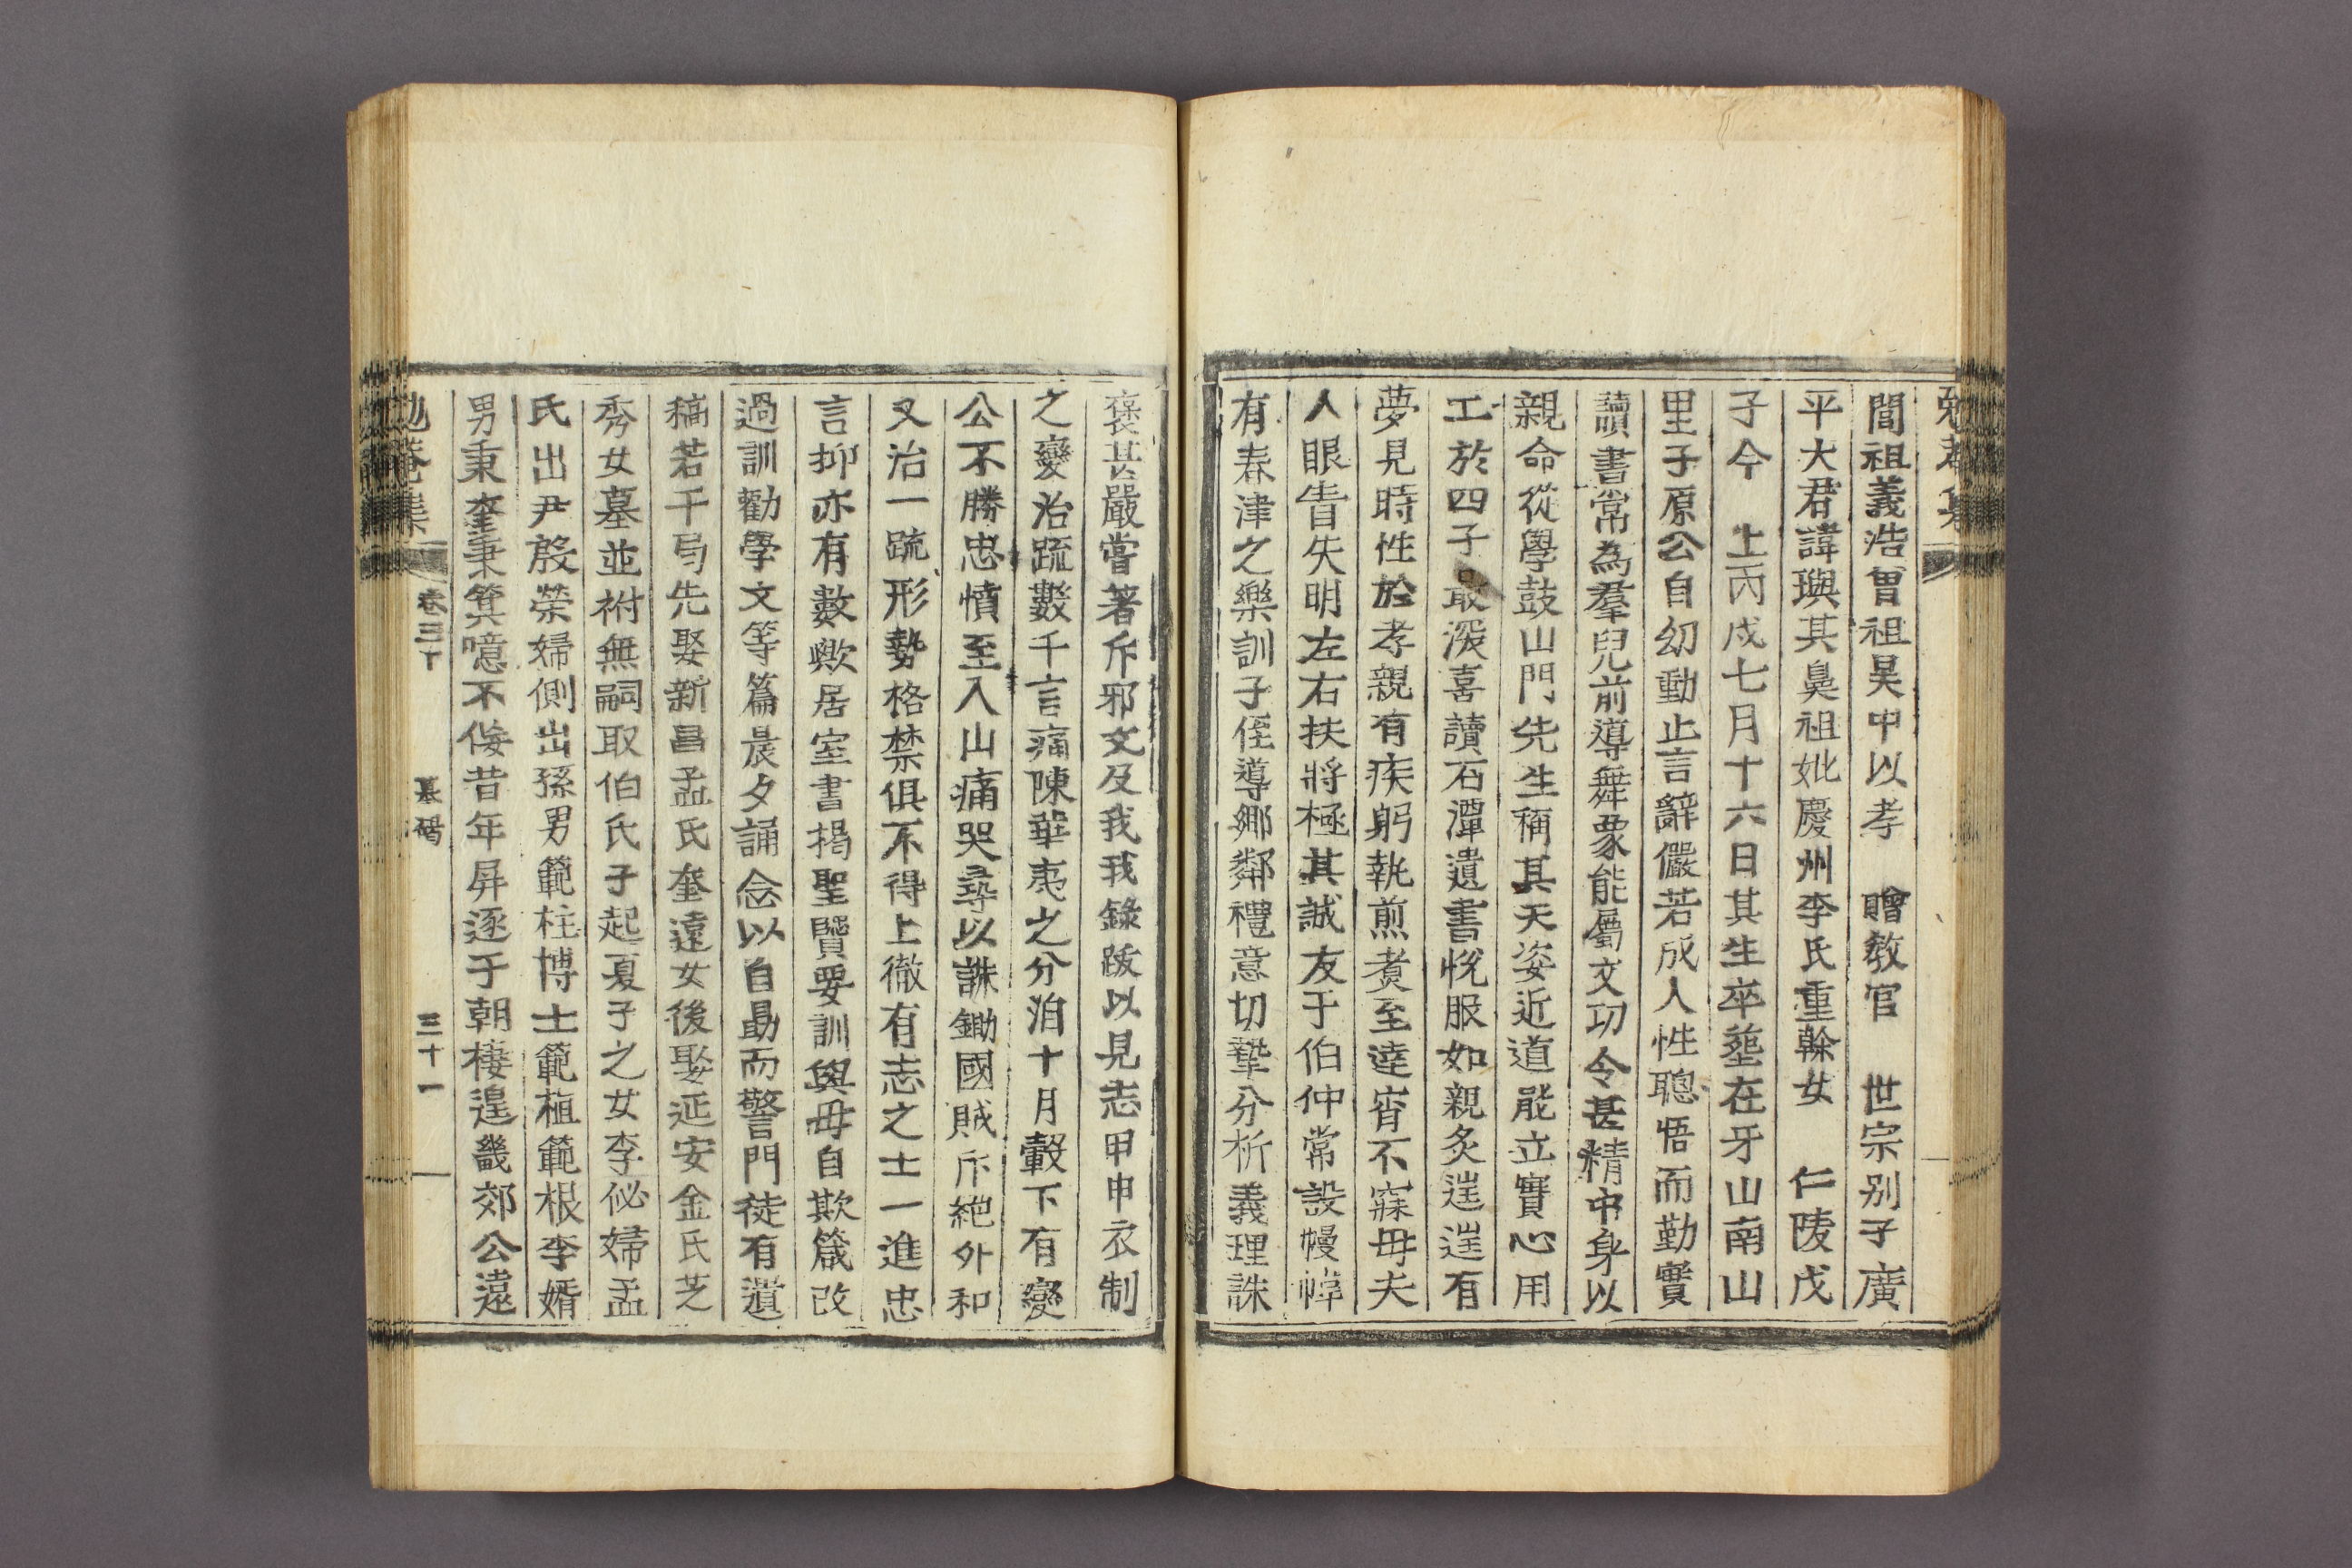 閒祖義浩曾祖昊中以孝 贈敎官 世宗别子廣
平大君諱璵其鼻祖妣慶州李氏重榦女 仁陵戊
子今 上丙戌七月十六日其生卒塟在牙山南山
里子原公自幼動止言辭儼若成人性聰悟而勤實
讀書常為羣兒前導舞象能屬文功令甚精中身以
親命從學鼓山門先生稱其天姿近道能立實心用
工於四子最深喜讀石潭遺書悅服如親炙迋迋有
夢見時性於孝親有疾躬執煎煑至達宵不寐毋夫
人眼眚失明左右扶將極其誠友于伯仲常設幔幃
有春津之樂訓子侄導鄉鄰禮意切摯分析義理誅
褒甚嚴嘗著斥邪文及我我錄跋以見志甲申衣制
之變治䟽數千言痛陳華夷之分洎十月轂下有變
公不勝忠憤至入山痛哭尋以誅鋤國賊斥絕外和
又治一䟽形勢格禁俱不得上徹有志之士一進忠
言抑亦有數歟居室書揭聖贒要訓與毋自欺箴改
過訓勸學文等篇晨夕誦念以自勗而警門徒有遺
稿若干局先娶新昌孟氏奎遠女後娶延安金氏芝
秀女墓並祔無嗣取伯氏子起夏子之女李佖婦孟
氏出尹殷榮婦側出孫男範柱博士範植範根李婿
男秉奎秉箕噫不侫昔年屏逐于朝棲遑畿郊公遠
勉菴集 卷三十 墓碣 三十一